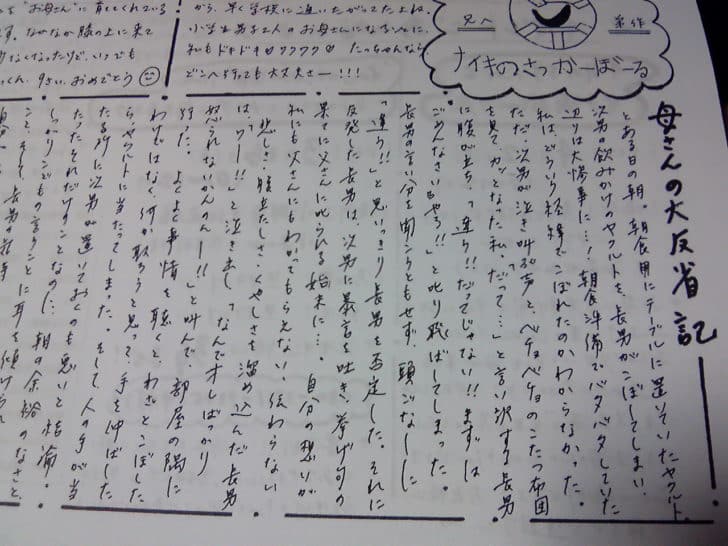 を"お母さん"に育ててくれている
す。なかなか膝の上に来て
りなくなったりと、いつでも
っくん、9さい、おめでとう
から、早く学校に通いたがってたよね。
小学生男子2人のお母さんになるなんて、
私もドキドキ♡ワクワク♡ たっちゃんなら
どこへ行っても大丈夫さー!!!
兄へ
弟作
ナイキのさっかーぼーる
母さんの大反省記
とある日の朝。朝食用にテーブルに置いていたヤクルト。
次男の飲みかけのヤクルトを、長男がこぼしてしまい、
辺りは大惨事に…!朝食準備でバタバタしていた
私は、どういう経緯でこぼれたのかわからなかった。
ただ、次男が泣き叫ぶ声と、ベチョベチョのこたつ布団
を見てカッとなった私。「だって…」と言い訳する長男
に腹が立ち、「違う!!だってじゃない!!まずは
ごめんなさいやろ!!」と叱り飛ばしてしまった。
長男の言い分を聞こうともせず、頭ごなしに
「違う!!」と思いっきり長男を否定した。それに
反発した長男は、次男に暴言を吐き、挙げ句の
果てに父さんに叱られる始末に…。自分の想いが
私にも父さんにもわかってもらえない、伝わらない
悲しさ・腹立たしさ・くやしさを溜め込んだ長男
は、「うー!!」と泣き出し「なんでオレばっかり
怒られないかんのんー!!」と叫んで、部屋の隅に
行った。よくよく事情を聴くと、わざとこぼした
わけではなく何か取ろうと思って手を伸ばした
らヤクルトに当たってしまった。そして、人の手が当
たる所に次男が置いておくのも悪いと結論。
たったそれだけのことなのに、朝の余裕のなさと、
しっかり子どもの言うことに耳を傾けられ
こと、そして、長男の